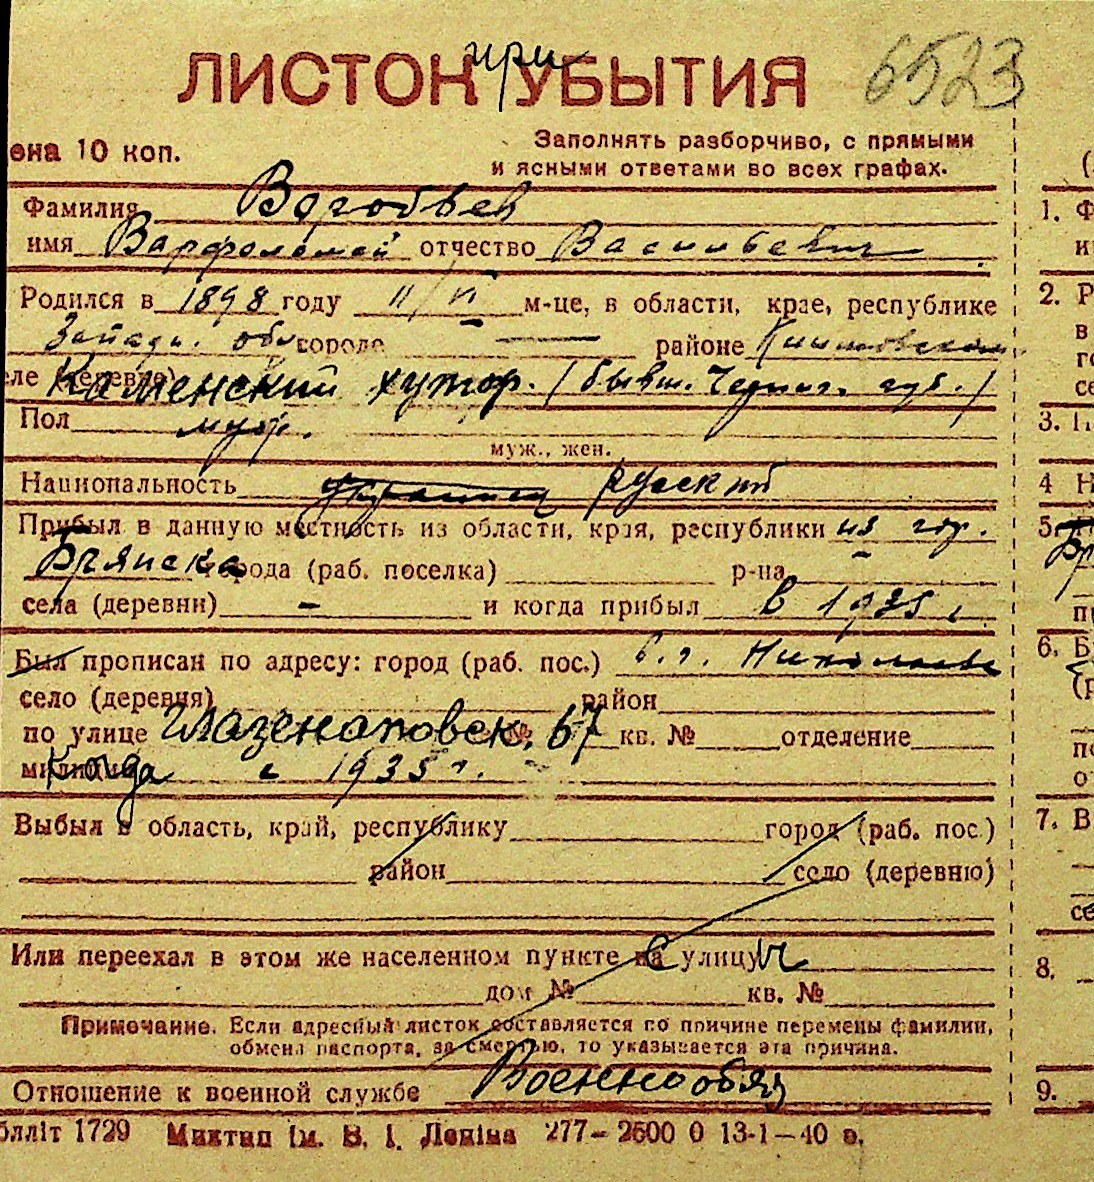 ЛИСТОК при УБЫТИЯ 6523
ена 10 коп.
Заполнять разборчиво, с прямыми
и ясными ответами во всех графах.
Фамилия Воробьев
имя Варфоломей отчество Васильевич
Родился в 1898 году 11/VI м-це, в области, крае, республике
Западн. обл городе — районе
еле (деревне) Каменский хутор. (бывш. Черниг. губ.)
Пол муж.
муж., жен.
Национальность украинец русский
Прибыл в данную местность из области, края, республики из гор.
Брянска города (раб. поселка) р-на
села (деревни) – и когда прибыл в 1935 г.
Был прописан по адресу: город (раб. пос.) в г. Николаеве
село (деревня) район
по улице Глазенаповск. № 67 кв. № отделение
милиции когда с 1935 г.
Выбыл в область, край, республику город (раб. пос.)
район село (деревню)
Или переехал в этом же населенном пункте на улицу
дом № кв. №
Примечание. Если адресный листок составляется по причине перемены фамилии,
обмена паспорта, за смертью, то указывается эта причина.
Отношение к военной службе Военнообяз
блліт 1729 Миктип ім. В. І. Леніна 277–2600 0 13-1–40 в.
(
1. Ф
и
2. Р
в
го
се
3. П
4 Н
5.
Бр
п
6. Б
(р
п
о
7. В
се
8.
9.